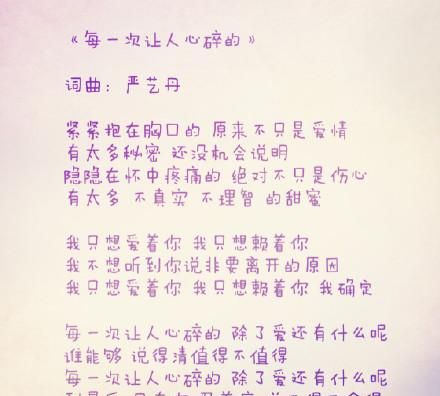 《每一次让人心碎的》
词曲：严艺丹
紧紧抱在胸口的 原来不只是爱情
有太多秘密 还没机会说明
隐隐在怀中疼痛的 绝对不只是伤心
有太多 不真实 不理智 的甜蜜
我只想爱着你 我只想赖着你
我不想听到你说非要离开的原因
我只想爱着你 我只想赖着你 我确定
每一次让人心碎的 除了爱还有什么呢
谁能够 说得清值得不值得
每一次让人心碎的 除了爱还有什么呢